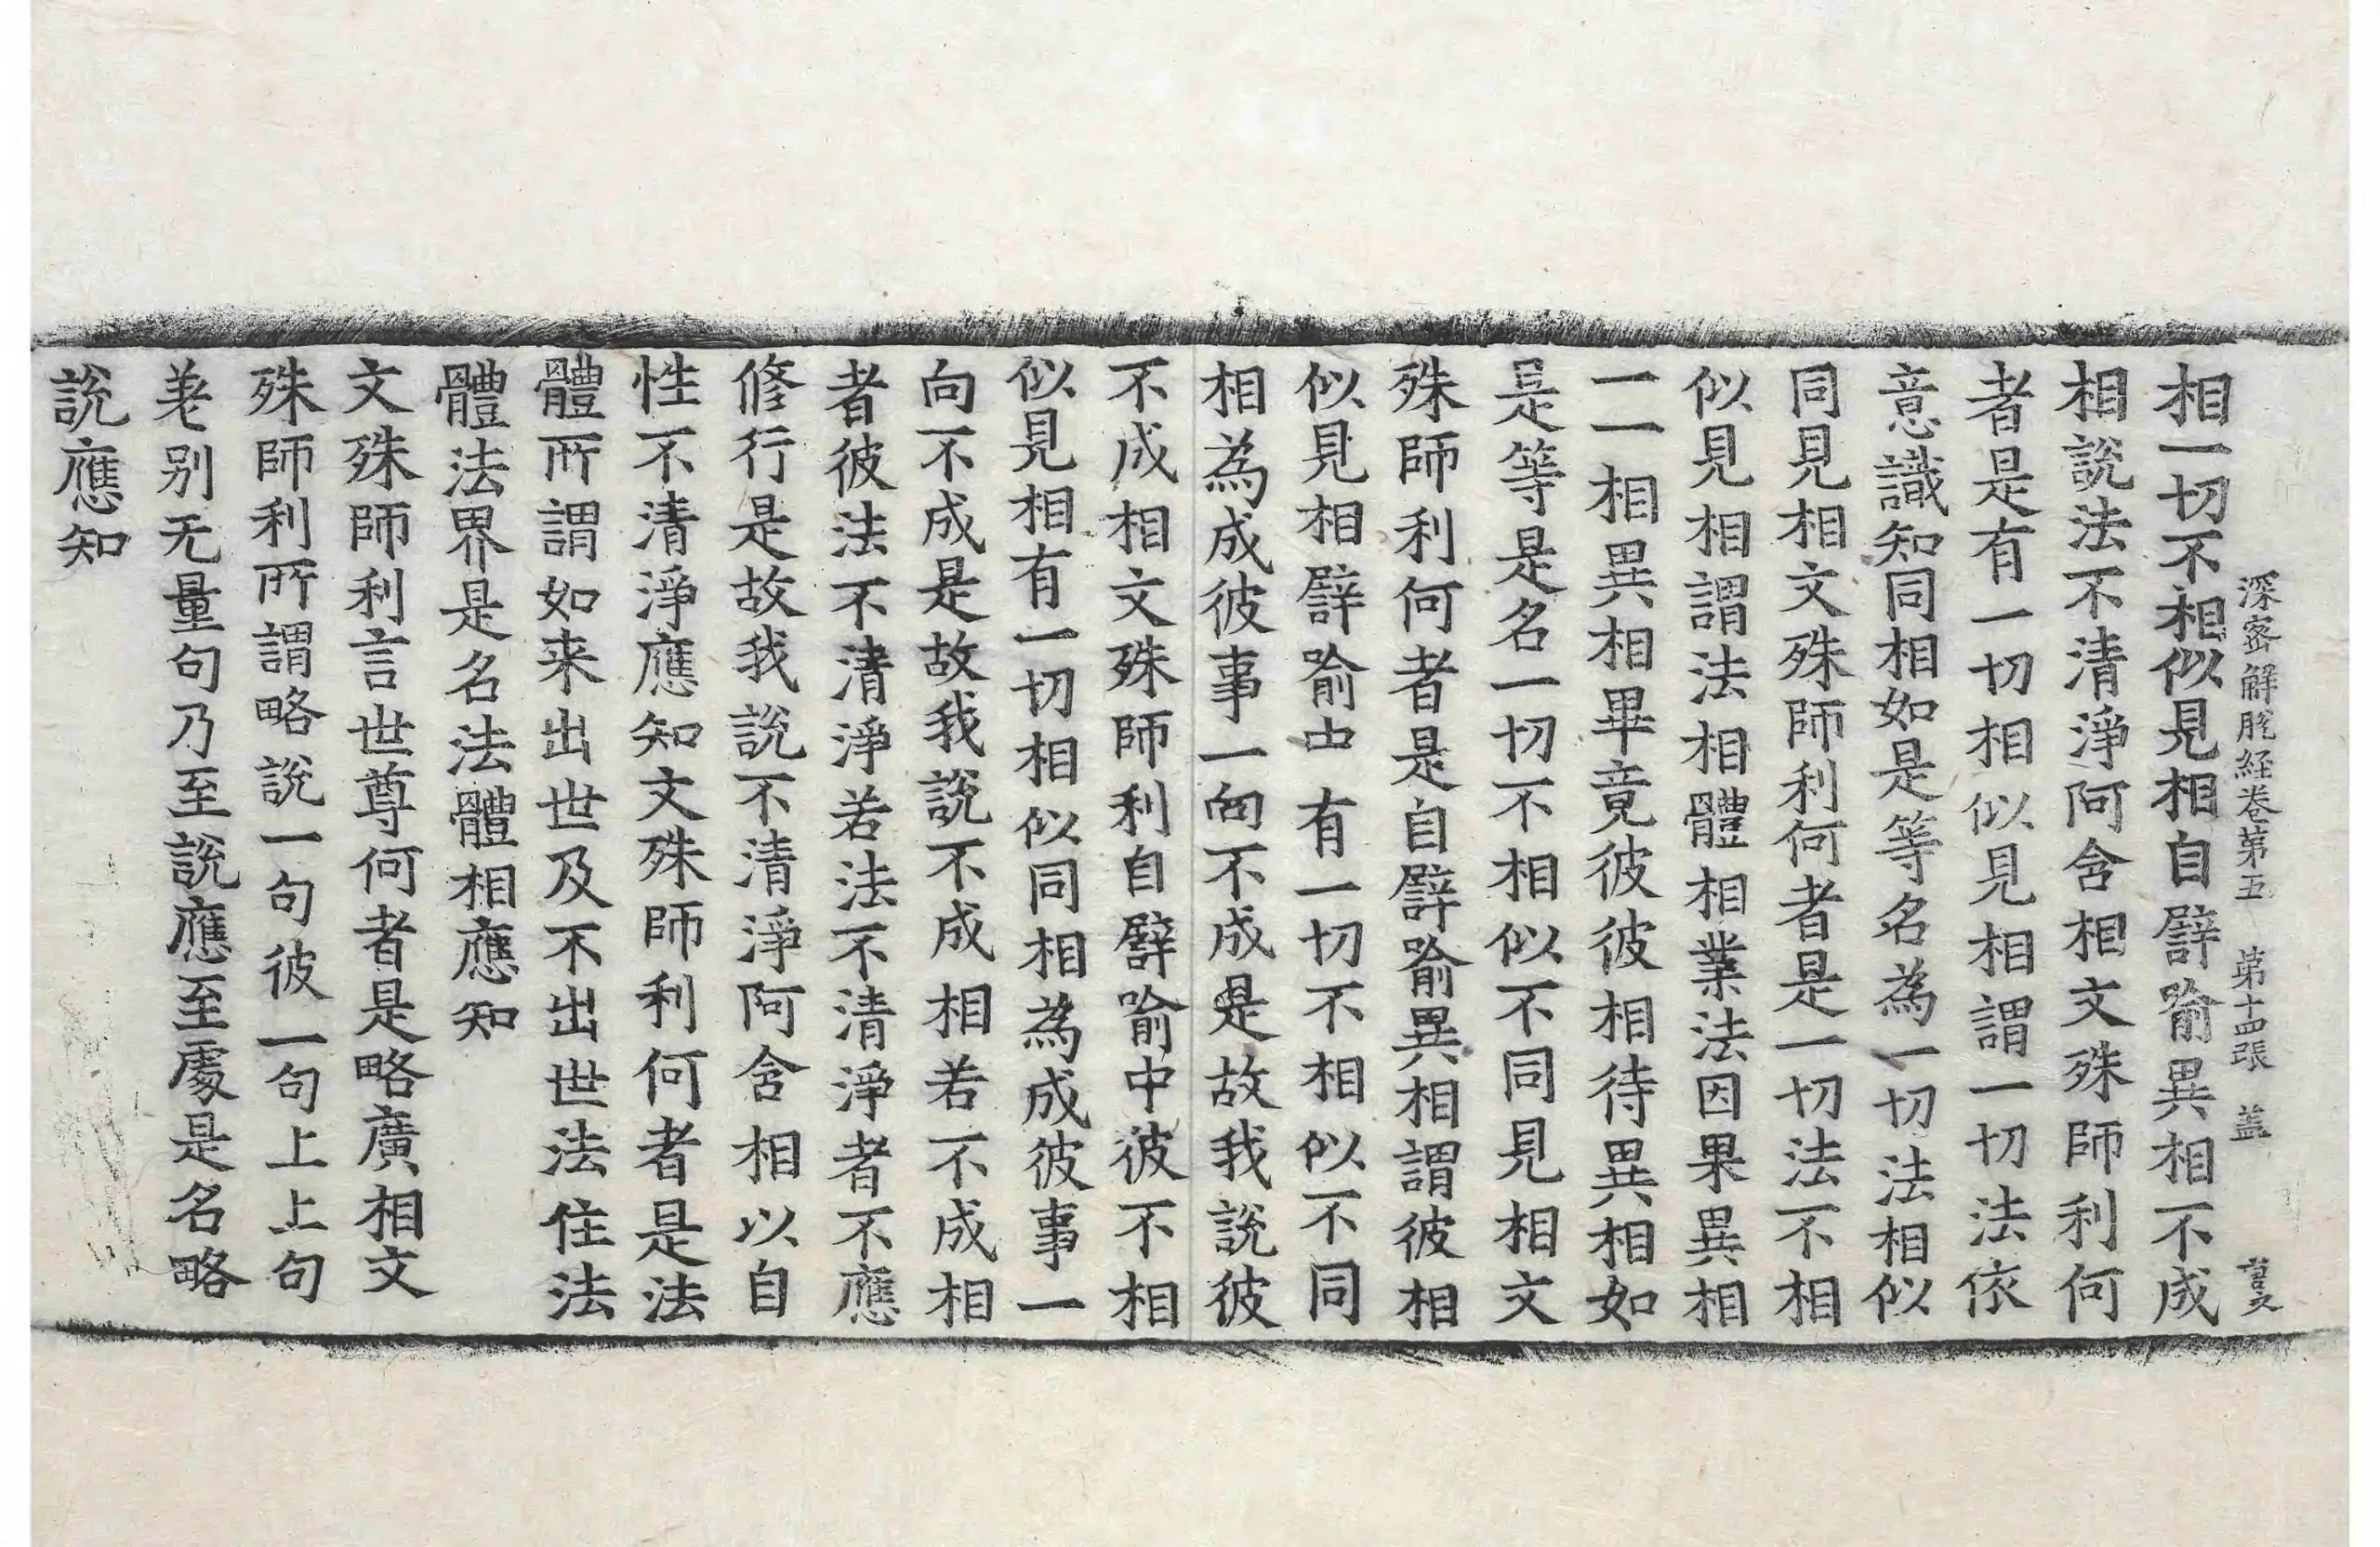 深密解脫経卷第五 第十四張 蓋
相一切不相似見相自譬喻異相不成
相說法不清淨阿含相文殊師利何
者是有一切相似見相謂一切法依
意識知同相如是等名為一切法相似
同見相文殊師利何者是一切法不相
似見相謂法相體相業法因果異相
一一相異相畢竟彼彼相待異相如
是等是名一切不相似不同見相文
殊師利何者是自譬喻異相謂彼相
似見相譬喻中有一切不相似不同
相為成彼事一向不成是故我說彼
不成相文殊師利自譬喻中彼不相
似見相有一切相似同相為成彼事一
向不成是故我說不成相若不成相
者彼法不清淨若法不清淨者不應
修行是故我說不清淨阿含相以自
性不清淨應知文殊師利何者是法
體所謂如来出世及不出世法住法
體法界是名法體相應知
文殊師利言世尊何者是略廣相文
殊師利所謂略說一句彼一句上上句
差别无量句乃至說應至處是名略
說應知